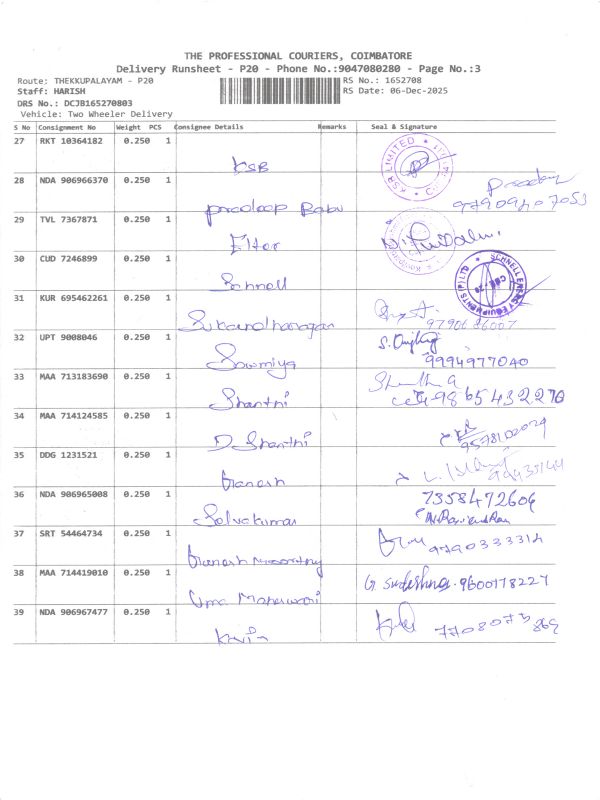 THE PROFESSIONAL COURIERS, COIMBATORE
Delivery Runsheet - P20 - Phone No.:9047080280 - Page No.:3
Route: THEKKUPALAYAM - P20 RS No.: 1652708
Staff: HARISH RS Date: 06-Dec-2025
DRS No.: DCJB165270803
Vehicle: Two Wheeler Delivery
S No Consignment No Weight PCS Consignee Details Remarks Seal & Signature
27 RKT 10364182 0.250 1
KSB
KSB LIMITED
28 NDA 906966370 0.250 1
Pradeep Babu
9790940 7053
29 TVL 7367871 0.250 1
30 CUD 7246899 0.250 1
Schnell
31 KUR 695462261 0.250 1
9790686007
32 UPT 9008046 0.250 1
Sowmiya 9994977040
33 MAA 713183690 0.250 1
Shanthi 9865432270
34 MAA 714124585 0.250 1
D Shanthi
35 DDG 1231521 0.250 1
Ganesh
36 NDA 906965008 0.250 1
7358472606
Selvakumar
37 SRT 54464734 0.250 1
Ganesh Moorthy 9790333314
38 MAA 714419010 0.250 1
G Sudeshna. 9600178227
Uma Maheswari
39 NDA 906967477 0.250 1
Kavin